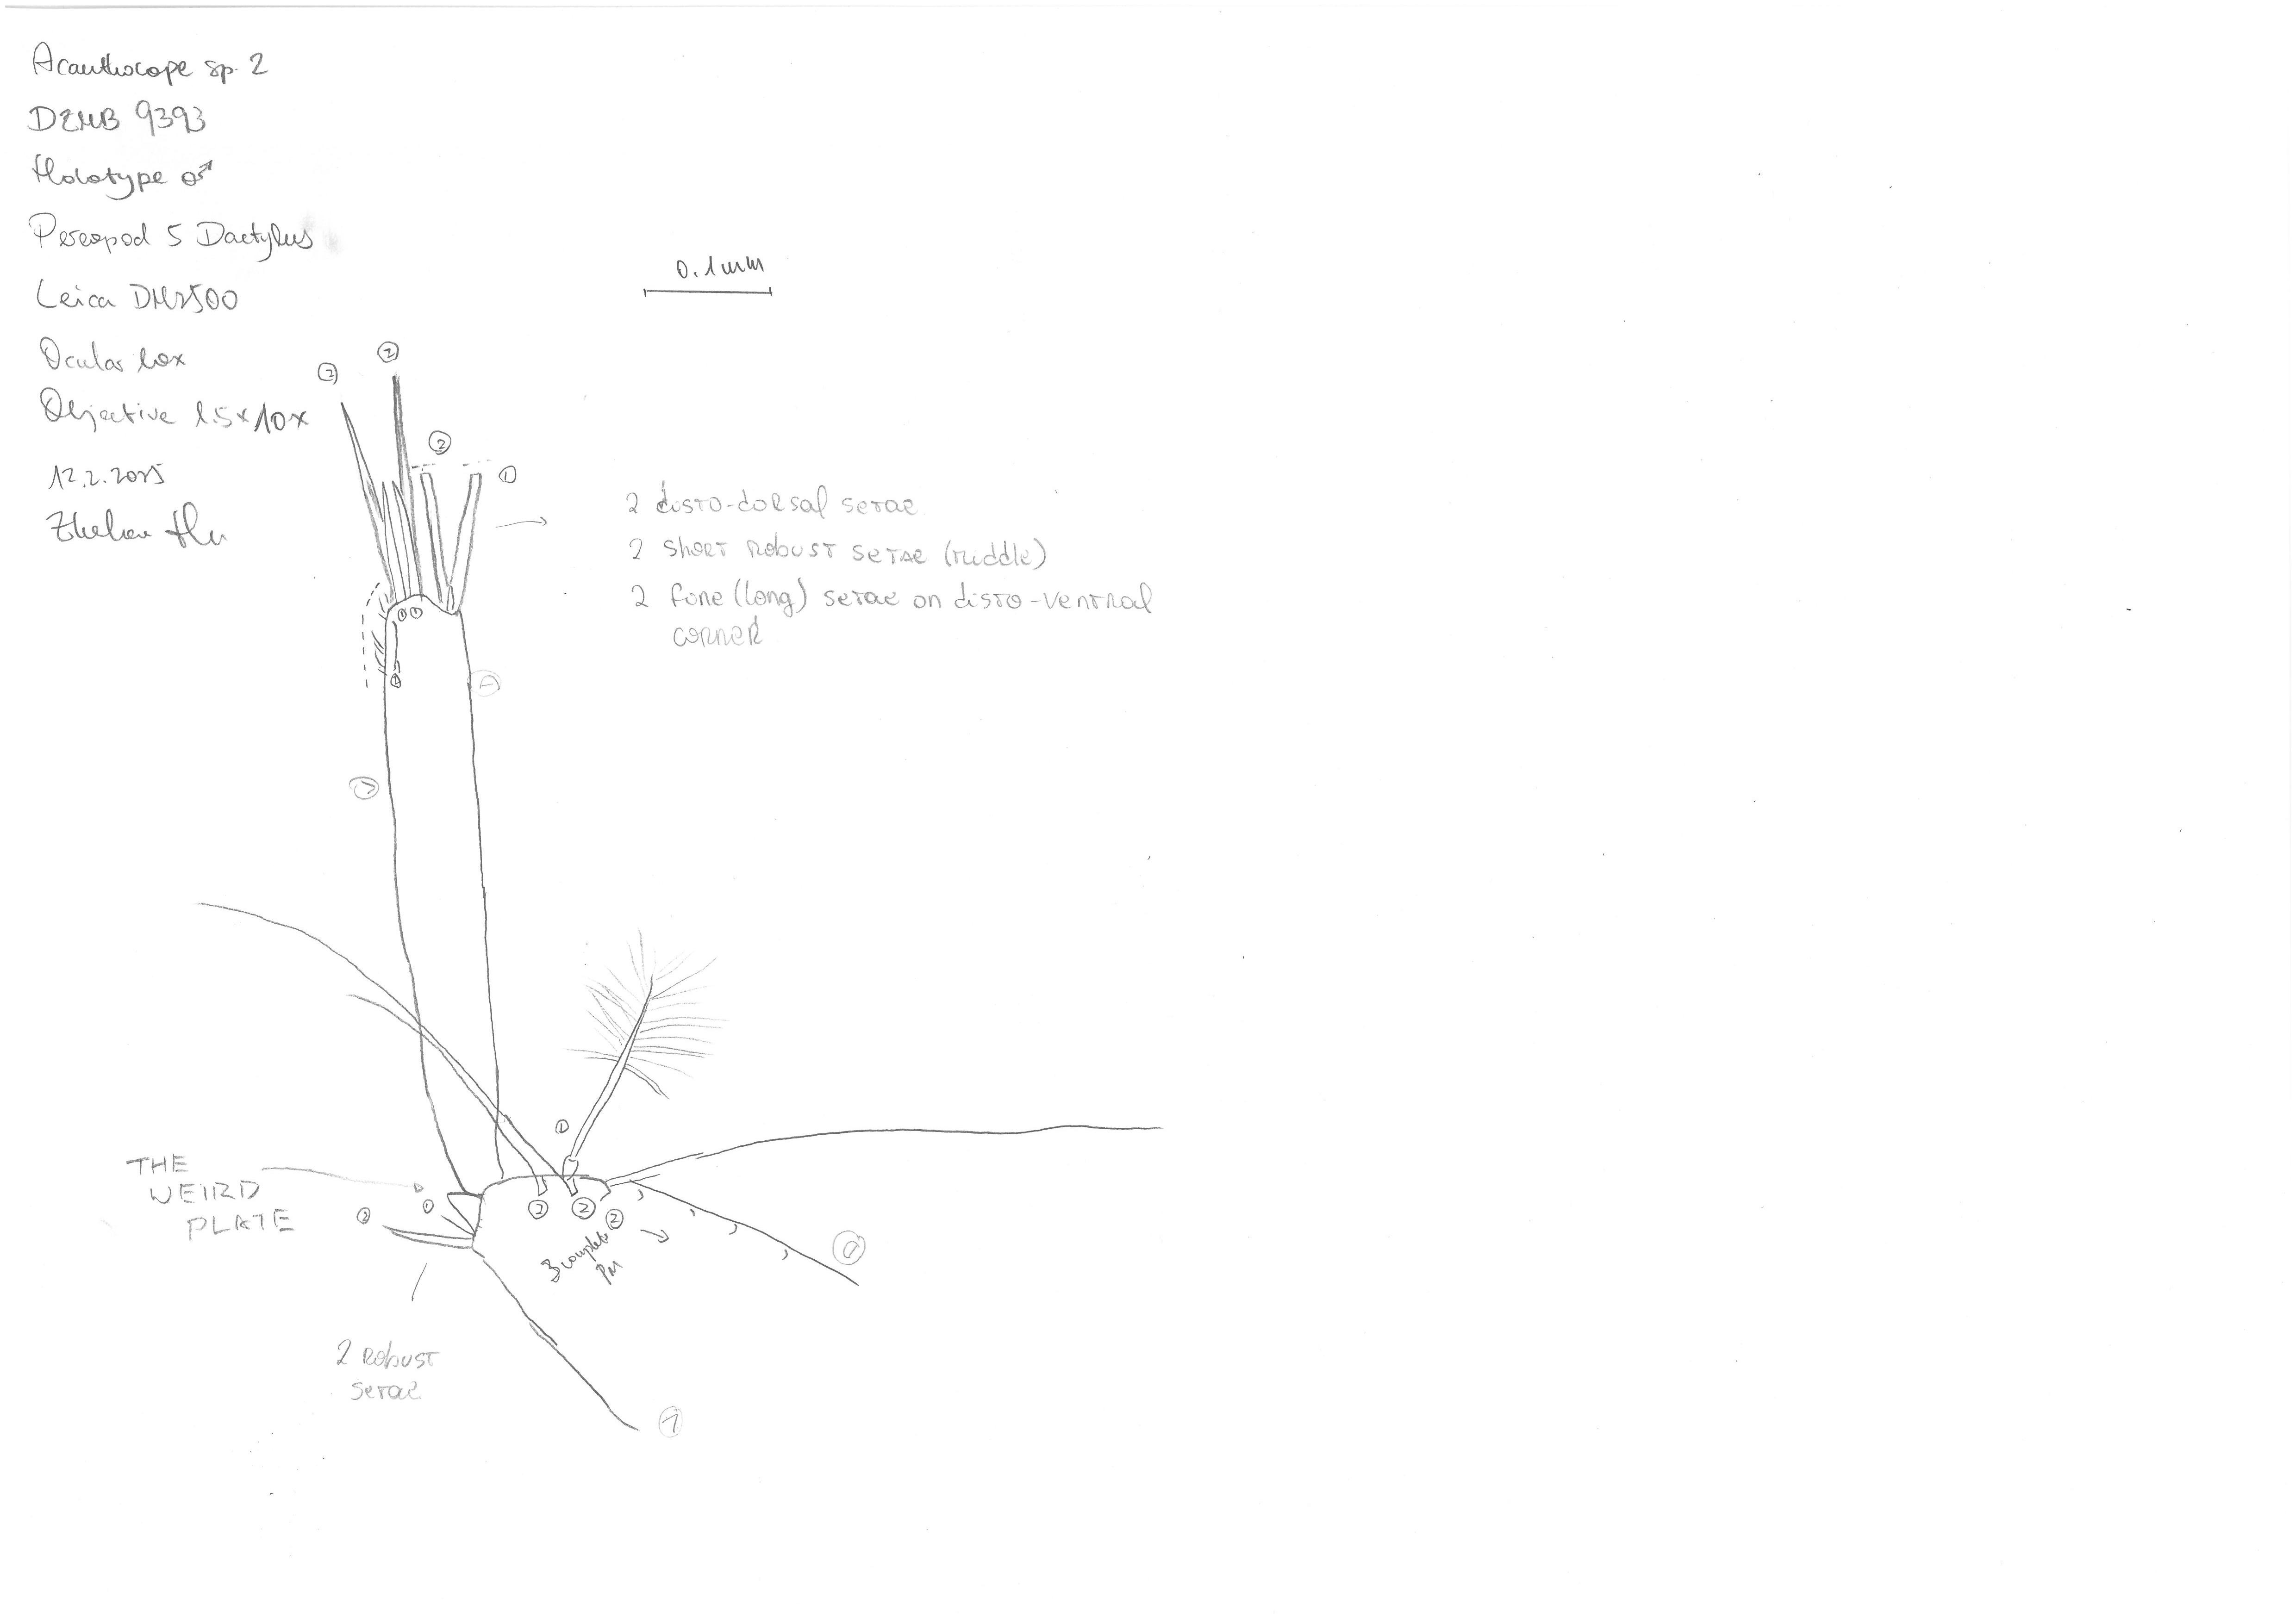 Acanthocope sp. 2
DZMB 9393
Holotype ♂
Pereopod 5 Dactylus
Leica DM2500
Ocular 10x
Objective 1.5x10x
12.2.2015
0.1mm
②
②
②
①
2 disto-dorsal setae
2 short robust setae (middle)
2 fine (long) setae on disto-ventral
corner
①①
①
①
THE
WEIRD
PLATE
①
②
②
②
②
2 robust
setae
①